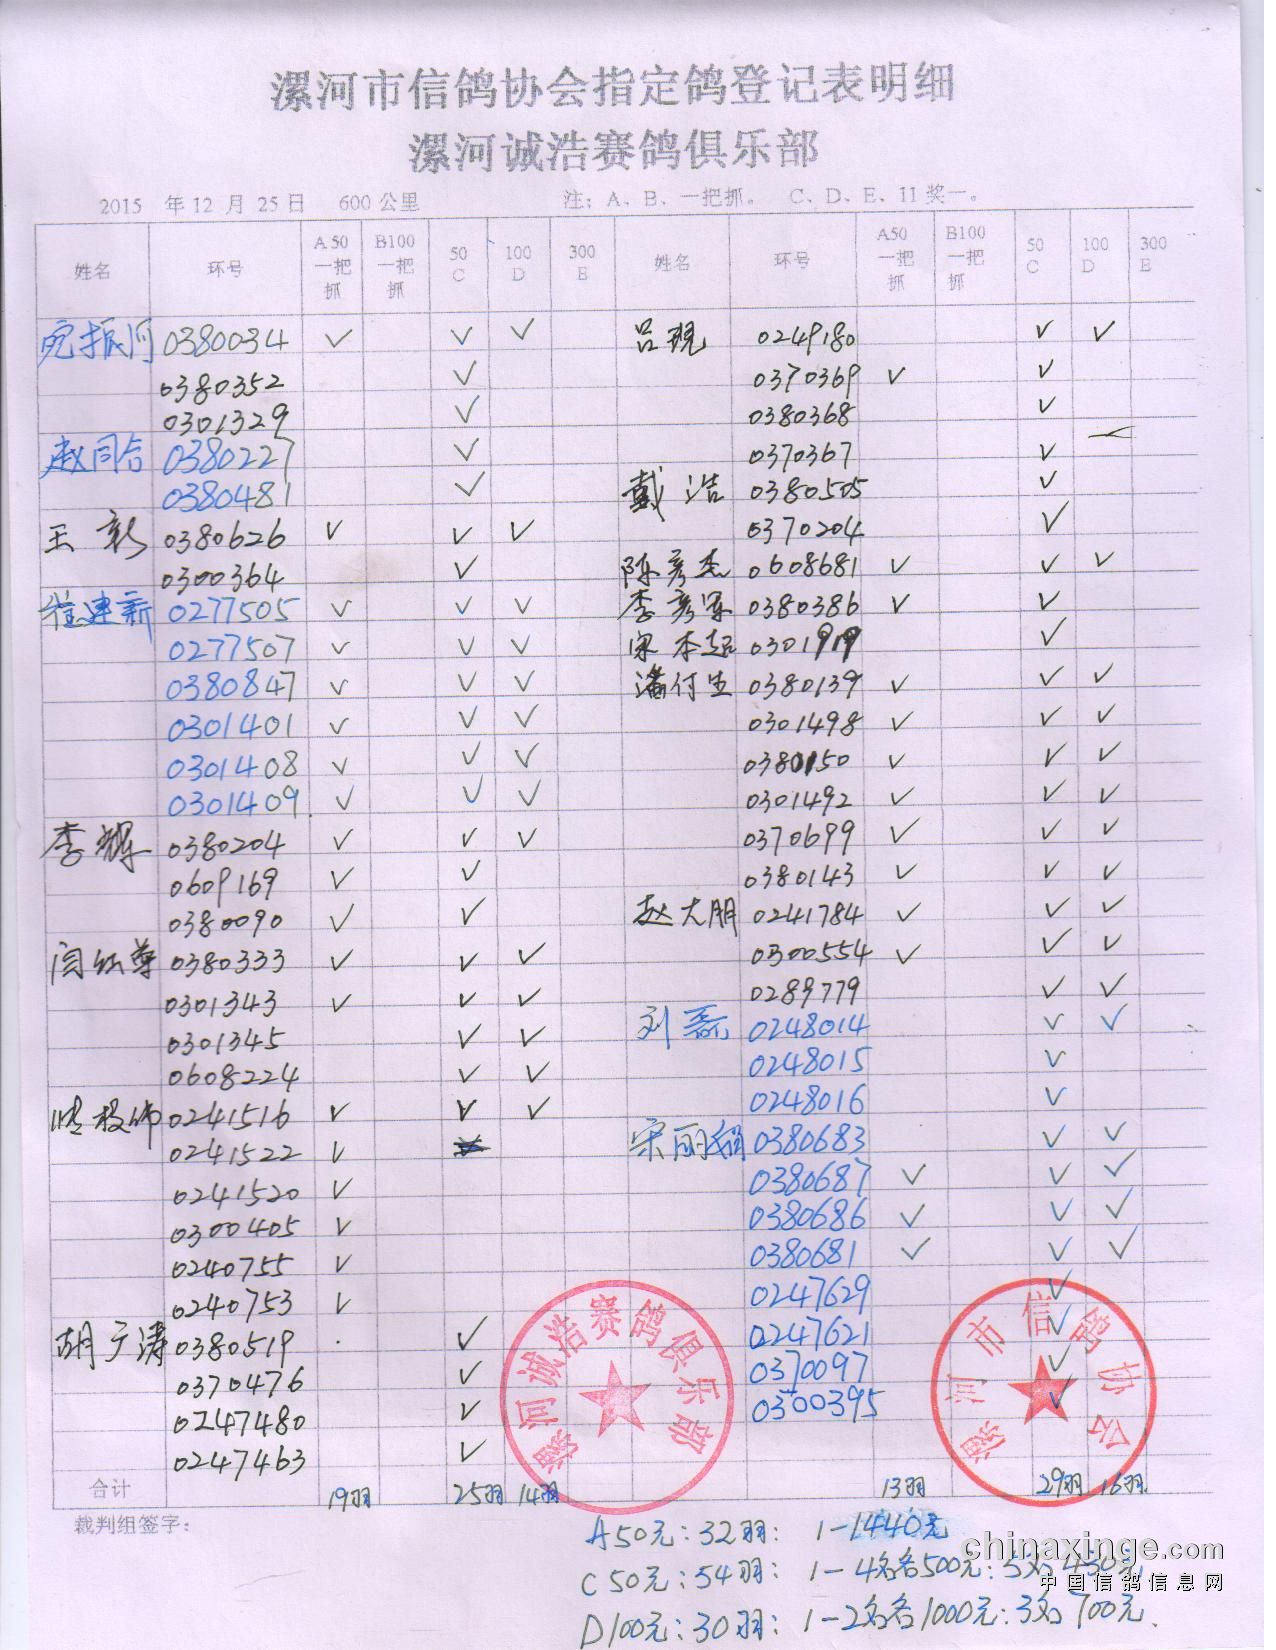 漯河市信鸽协会指定鸽登记表明细
漯河诚浩赛鸽俱乐部
2015 年 12 月 25 日 600 公里 注；A、B、一把抓。 C、D、E、11 奖一。
姓名 环号 A 50 一把抓 B100 一把抓 50 C 100 D 300 E 姓名 环号 A50 一把抓 B100 一把抓 50 C 100 D 300 E
宛振河 0380034 ✓ ✓ ✓ 吕现 0249180 ✓ ✓
0380352 ✓ 0370369 ✓ ✓
0301329 ✓ 0380368 ✓
赵同合 0380227 ✓ 0370367 ✓
0380481 ✓ 戴浩 0380505 ✓
王彰 0380626 ✓ ✓ ✓ 0370204 ✓
0300364 ✓ 陈彦杰 0608681 ✓ ✓ ✓
建新 0277505 ✓ ✓ ✓ 李彦军 0380386 ✓ ✓
0277507 ✓ ✓ ✓ 宋本超 0301919 ✓
0380847 ✓ ✓ ✓ 潘付生 0380139 ✓ ✓ ✓
0301401 ✓ ✓ ✓ 0301498 ✓ ✓ ✓
0301408 ✓ ✓ ✓ 0380150 ✓ ✓ ✓
0301409 ✓ ✓ ✓ 0301492 ✓ ✓ ✓
李辉 0380204 ✓ ✓ ✓ 0370699 ✓ ✓ ✓
0609169 ✓ ✓ 0380143 ✓ ✓ ✓
0380090 ✓ ✓ 赵大朋 0241784 ✓ ✓ ✓
闫红尊 0380333 ✓ ✓ ✓ 0300554 ✓ ✓ ✓
0301343 ✓ ✓ ✓ 0289779 ✓ ✓
0301345 ✓ ✓ 刘磊 0248014 ✓ ✓
0608224 ✓ ✓ 0248015 ✓
0241516 ✓ ✓ ✓ 0248016 ✓
0241522 ✓ 宋丽娟 0380683 ✓ ✓
0241520 ✓ 0380687 ✓ ✓ ✓
0300405 ✓ 0380686 ✓ ✓ ✓
0240755 ✓ 0380681 ✓ ✓ ✓
0240753 ✓ 0247629 ✓
胡于涛 0380519 ✓ 0247621 ✓
0370476 ✓ 0370097 ✓
0247480 ✓ 0300395 ✓
0247463 ✓
漯河诚浩赛鸽俱乐部
漯河市信鸽协会
合计 19羽 25羽 14羽 13羽 29羽 16羽
裁判组签字：
A50元：32羽： 1-1440元
C50元：54羽： 1-4名各500元：5名 450元
D100元：30羽：1-2名各1000元：3名 700元.
chinaxinge.com
中国信鸽信息网